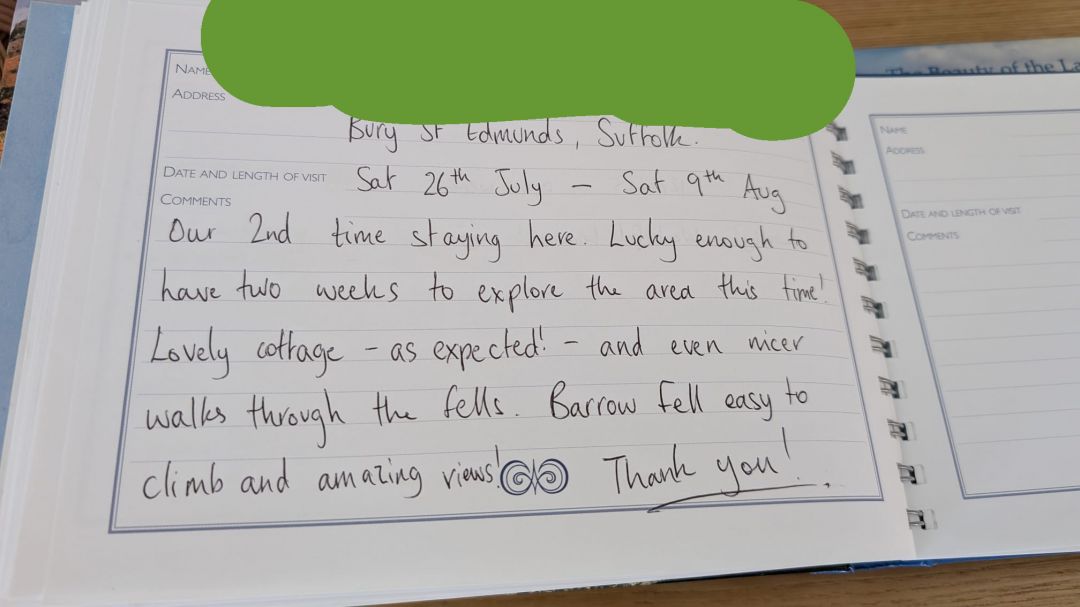 The Beauty of the La
NAME
ADDRESS
Bury St Edmunds, Suffolk.
DATE AND LENGTH OF VISIT Sat 26th July – Sat 9th Aug
COMMENTS
Our 2nd time staying here. Lucky enough to
have two weeks to explore the area this time!
Lovely cottage - as expected! - and even nicer
walks through the fells. Barrow Fell easy to
climb and amazing views! Thank you!
NAME
ADDRESS
DATE AND LENGTH OF VISIT
COMMENTS